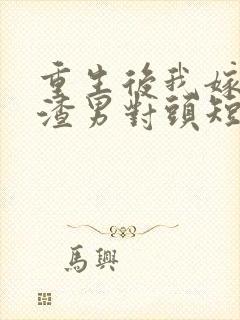 重生後我嫁
渣男對頭短
馬興